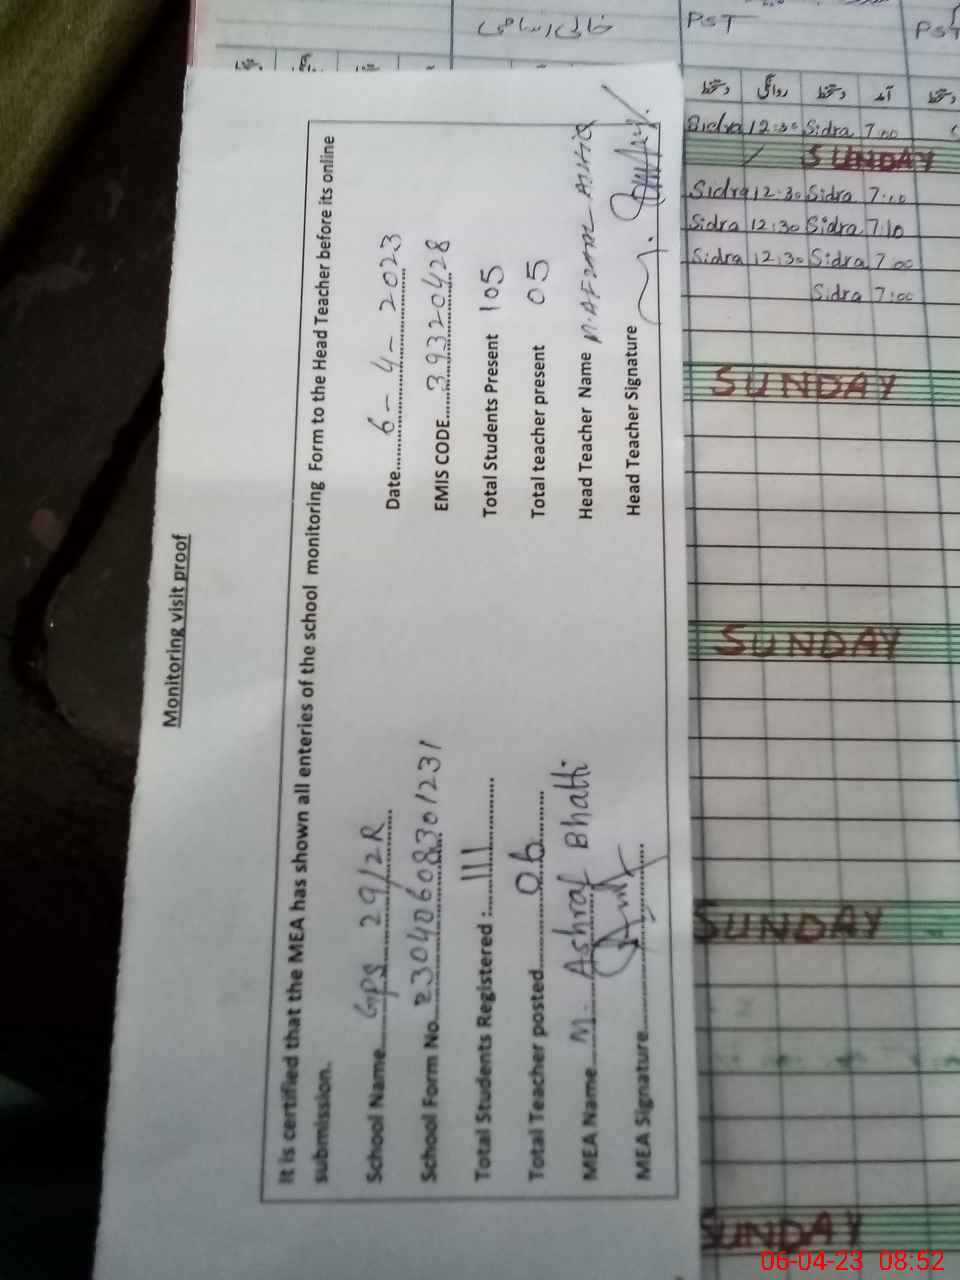 Monitoring visit proof
It is certified that the MEA has shown all enteries of the school monitoring Form to the Head Teacher before its online
submission.
School Name GPS 29/2R Date 6-4-2023
School Form No. 23040608301231 EMIS CODE 39320428
Total Students Registered : 111 Total Students Present 105
Total Teacher posted 06 Total teacher present 05
MEA Name M. Ashraf Bhatti Head Teacher Name M. AFZAAL
MEA Signature Head Teacher Signature
PST PST
Sidra 12:30 Sidra 7:00
SUNDAY
Sidra 12:30 Sidra 7:10
Sidra 12:30 Sidra 7:10
Sidra 12:30 Sidra 7:00
Sidra 7:00
SUNDAY
SUNDAY
SUNDAY
SUNDAY
06-04-23 08:52